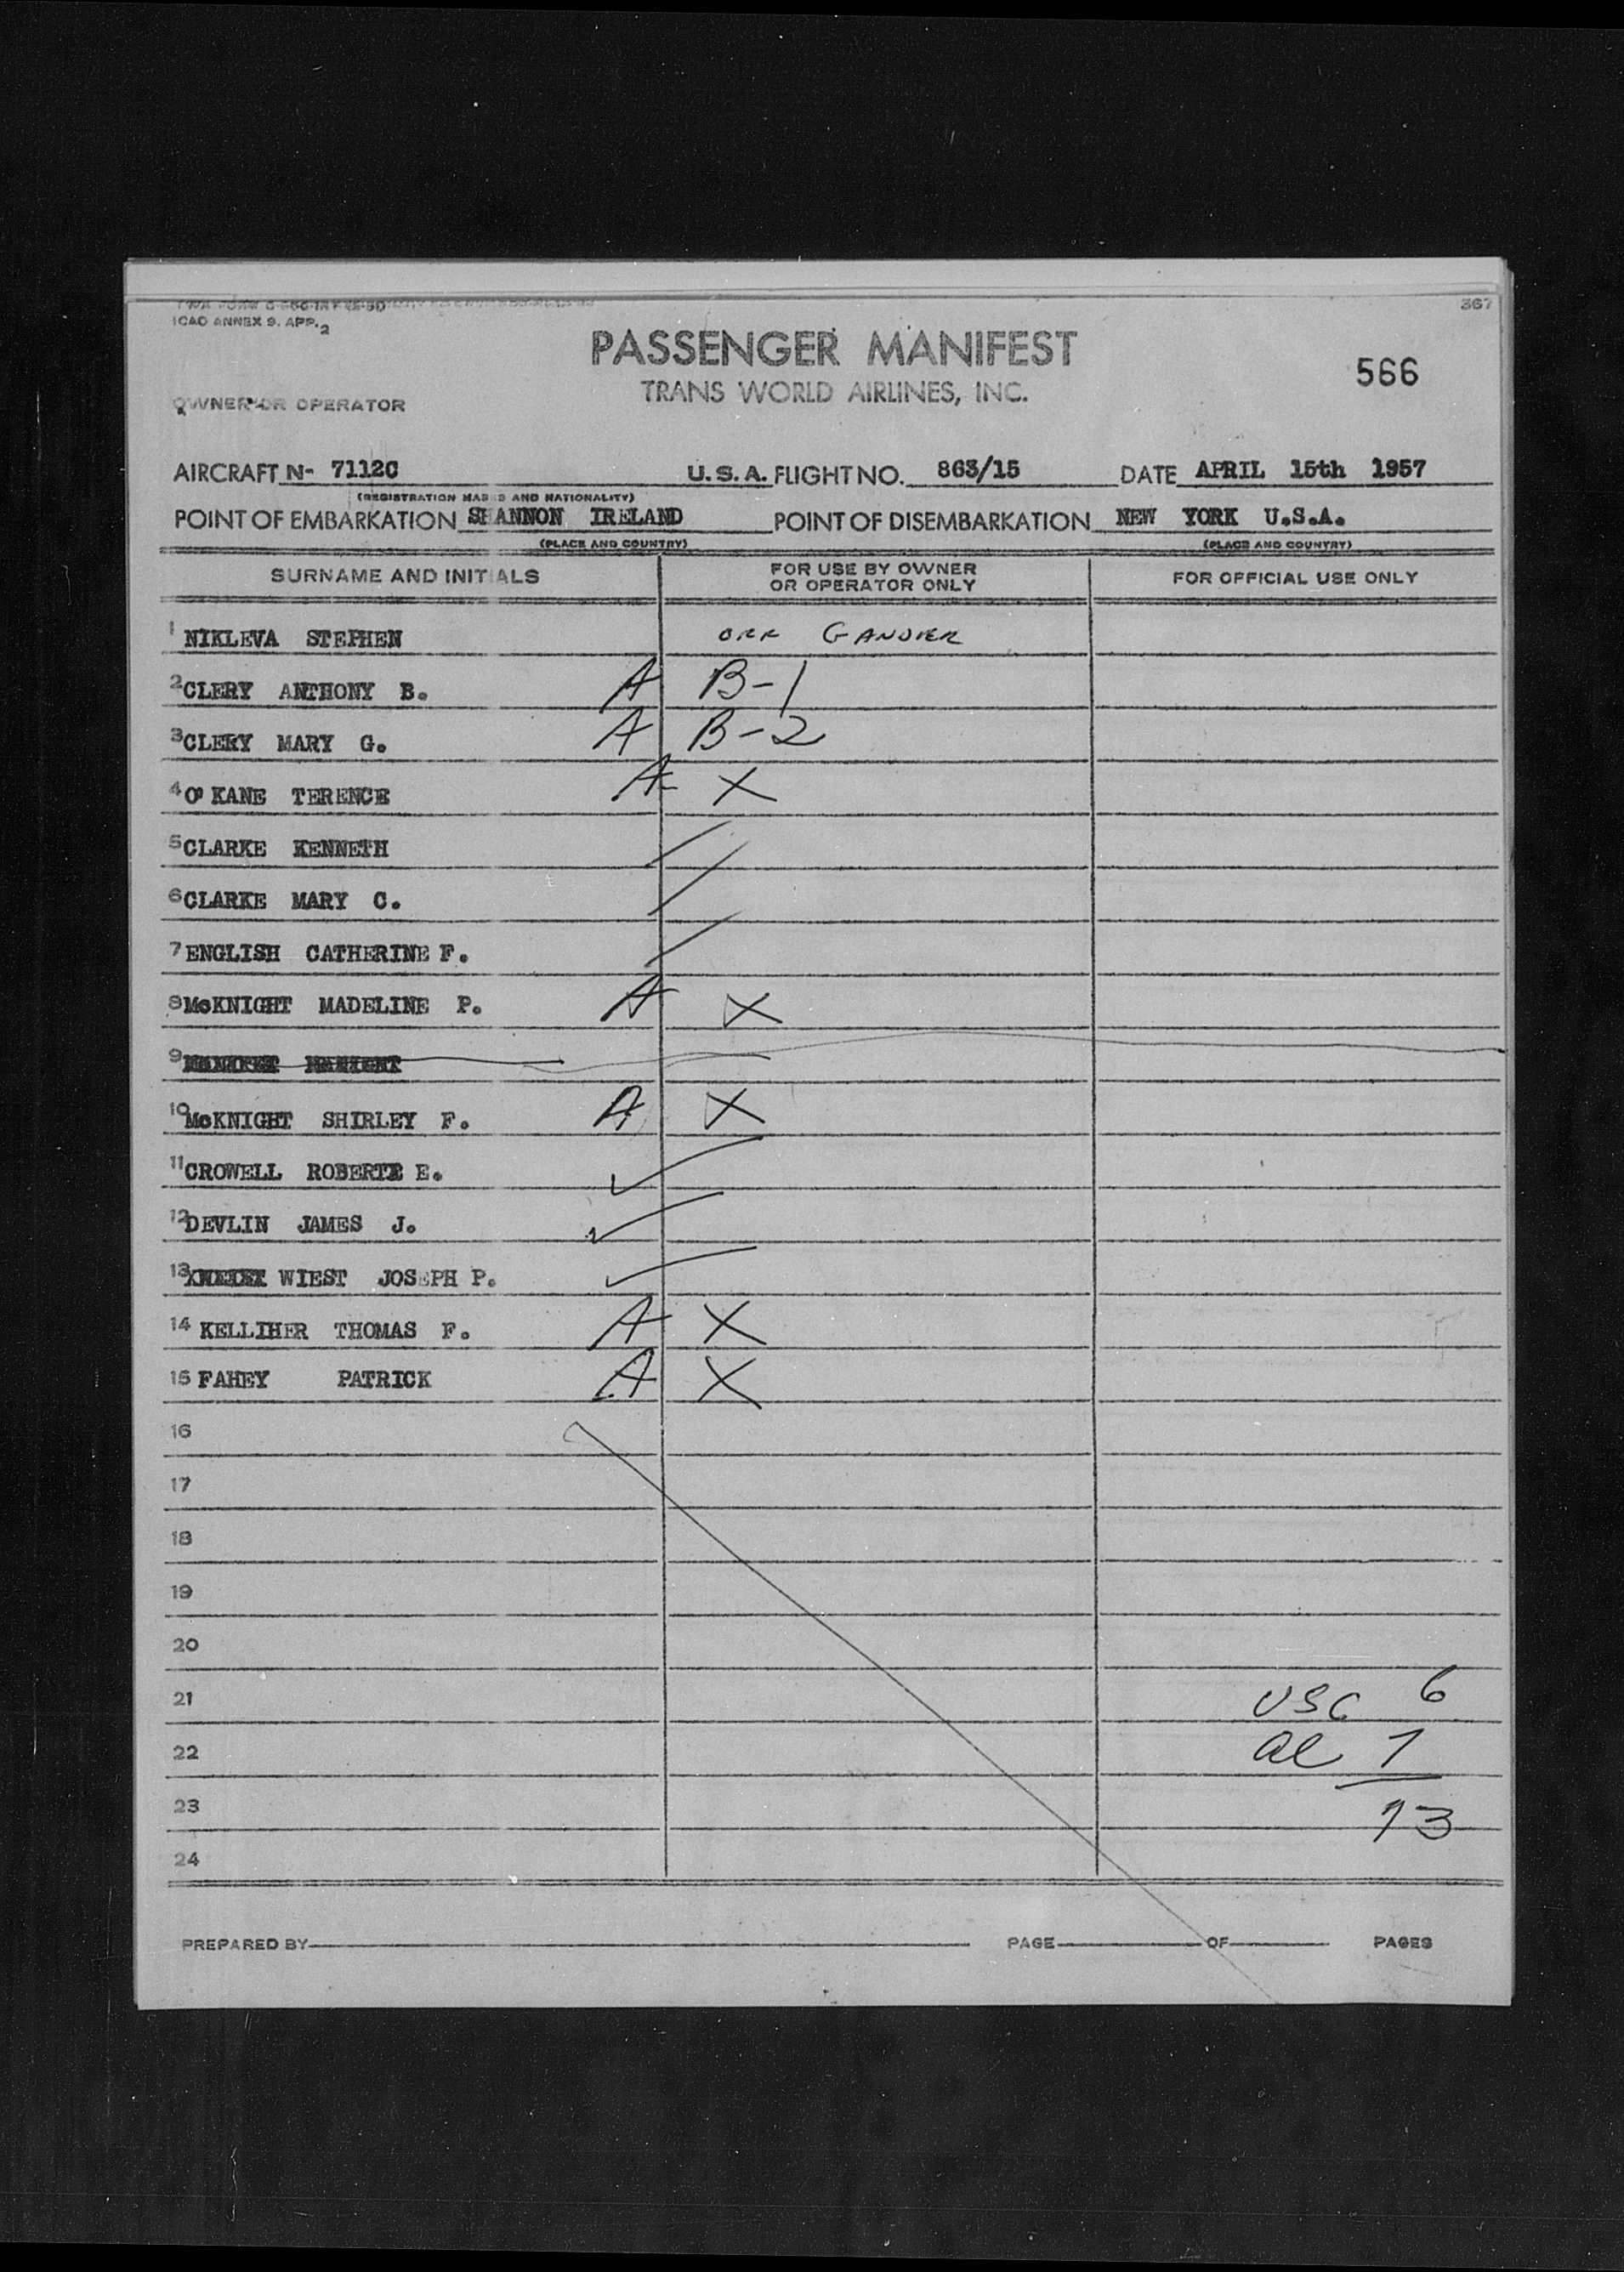 ICAO ANNEX 9. APP. 2
367
PASSENGER MANIFEST
566
TRANS WORLD AIRLINES, INC.
OWNER OR OPERATOR
AIRCRAFT N- 7112C U.S.A. FLIGHT NO. 863/15 DATE APRIL 15th 1957
(REGISTRATION MARKS AND NATIONALITY)
POINT OF EMBARKATION SHANNON IRELAND POINT OF DISEMBARKATION NEW YORK U.S.A.
(PLACE AND COUNTRY) (PLACE AND COUNTRY)
SURNAME AND INITIALS FOR USE BY OWNER OR OPERATOR ONLY FOR OFFICIAL USE ONLY
1 NIKLEVA STEPHEN OFF GANDER
2 CLERY ANTHONY B. A B-1
3 CLERY MARY G. A B-2
4 O' KANE TERENCE A X
5 CLARKE KENNETH
6 CLARKE MARY C.
7 ENGLISH CATHERINE F.
8 McKNIGHT MADELINE P. A X
9
10 McKNIGHT SHIRLEY F. A X
11 CROWELL ROBERT E.
12 DEVLIN JAMES J.
13 WIEST JOSEPH P.
14 KELLIHER THOMAS F. A X
15 FAHEY PATRICK A X
16
17
18
19
20
21 USC 6
22 al 7
23 13
24
PREPARED BY PAGE OF PAGES